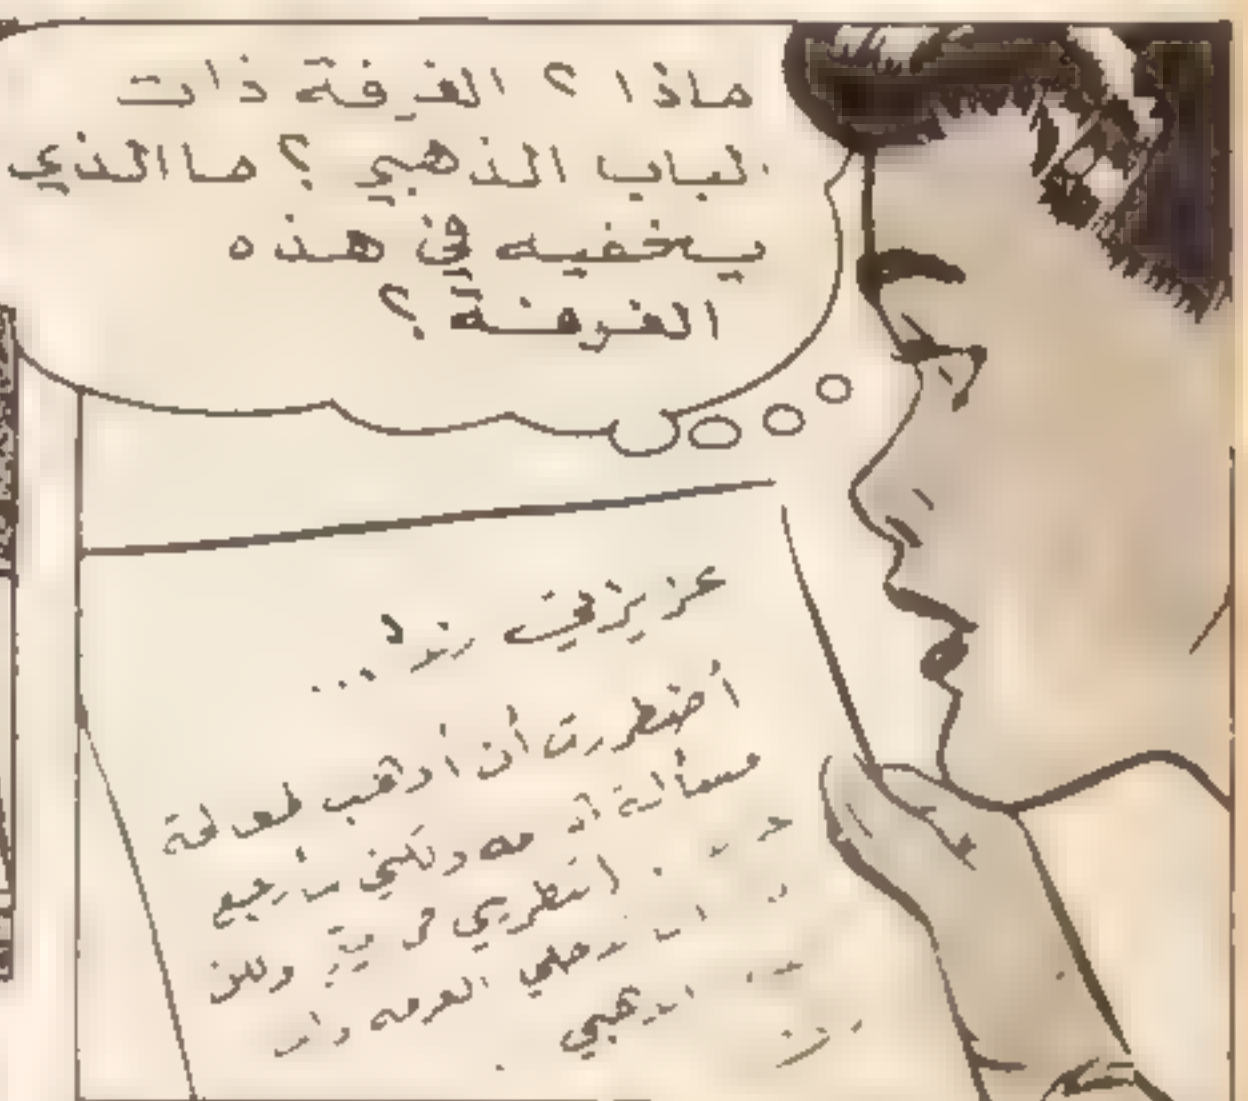 ماذا ؟ الغرفة ذات
الباب الذهبي ؟ ما الذي
يخفيه في هذه
الغرفة ؟
عزيزتي رند ...
أضطررت أن أذهب لمعالجة
مسألة هامة ولكني سأرجع
انتظريني في ولكن
تدخلي الغرفة ذات
الذهبي